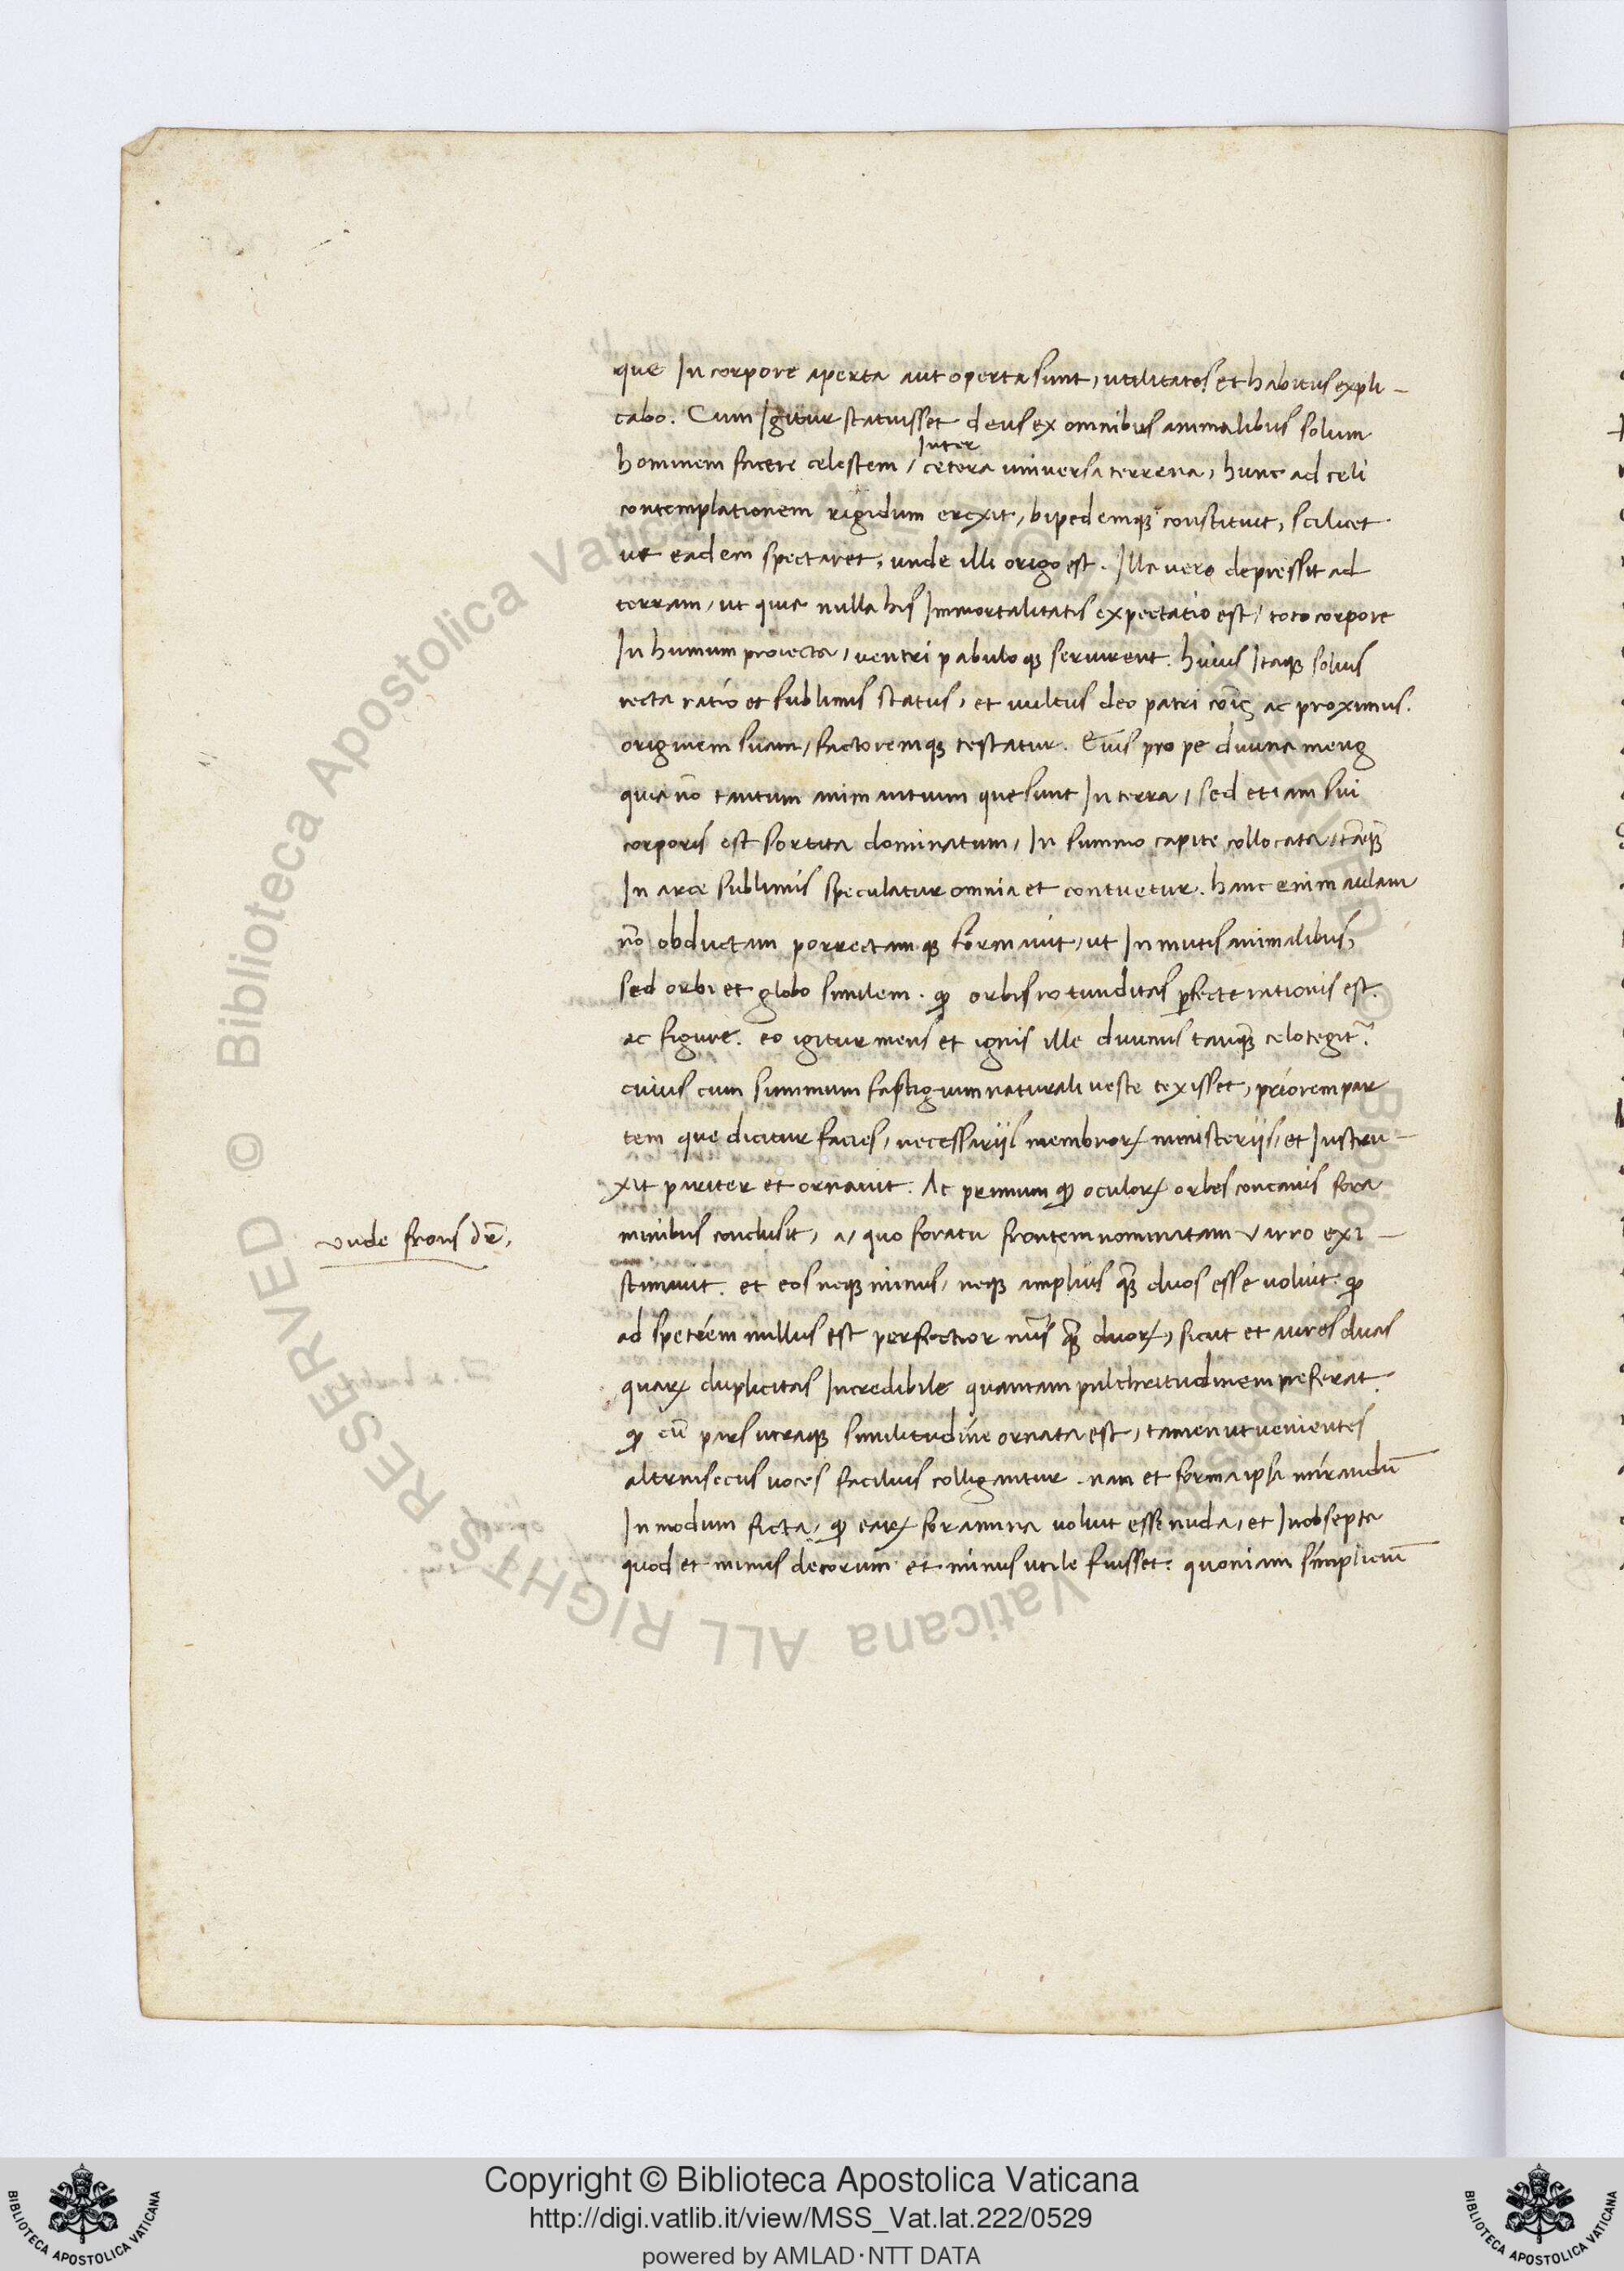 que In corpore aperta aut operta sunt, utilitates et habitus expli-
cabo. Cum Igitur statuisset deus ex omnibus animalibus solum
Inter
hominem facere celestem / cetera universa terrena, hunc ad celi
contemplationem rigidum erexit, bipedemqꝫ constituit, scilicet
ut eadem spectaret, unde illi origo est. Illa vero depressit ad
terram, ut quia nulla his Immortalitatis expectatio est, toto corpore
In humum proiecta, ventri pabuloqꝫ servirent. huius Itaqꝫ solius
recta ratio et sublimis status, et uultus deo patri cōis ac proximus.
originem suam, factoremqꝫ testatur. Eius prope divina mens
quia nō tantum animantium que sunt In terra, sed etiam sui
corporis est sortita dominatum, In summo capite collocata, tāqꝫ
In arce sublimis speculatur omnia et contuetur. hanc enim aulam
nō obductam porrectamqꝫ formavit, ut In mutis animalibus,
sed orbi et globo similem. qꝫ orbis rotunditas ꝑfecte rationis est.
ac figure. eo igitur mens et ignis ille divinus tanqꝫ celo tegit̃.
cuius cum summum fastigium naturali veste texisset, priorem par
tem que dicitur facies, necessariis membroꝝ ministeriis, et Instru-
xit pariter et ornavit. Ac primum qꝫ oculoꝝ orbes concavis fora
minibus conclusit, a, quo foratu frontem nominatam varro exi-
stimavit. et eos neqꝫ minus, neqꝫ amplius qꝫ duos esse voluit. qꝫ
ad spetiem nullus est perfectior nūs qꝫ duoꝝ, sicut et aures duas
quaꝝ duplicitas Incredibile quantam pulchritudinem preferat.
qꝫ cū pars utraqꝫ similitudine ornata est, tamen ut venientes
altrinsecus voces facilius colligantur. nam et forma ipsa mirandū
In modum ficta, qꝫ eaꝝ foramina voluit esse nuda, et Inobsepta
quod et minus decorum et minus utile fuisset. quoniam simplicium
vnde frons dr̄,
© Biblioteca Apostolica Vaticana ALL RIGHTS RESERVED
Copyright © Biblioteca Apostolica Vaticana
http://digi.vatlib.it/view/MSS_Vat.lat.222/0529
powered by AMLAD·NTT DATA
BIBLIOTECA APOSTOLICA VATICANA
BIBLIOTECA APOSTOLICA VATICANA